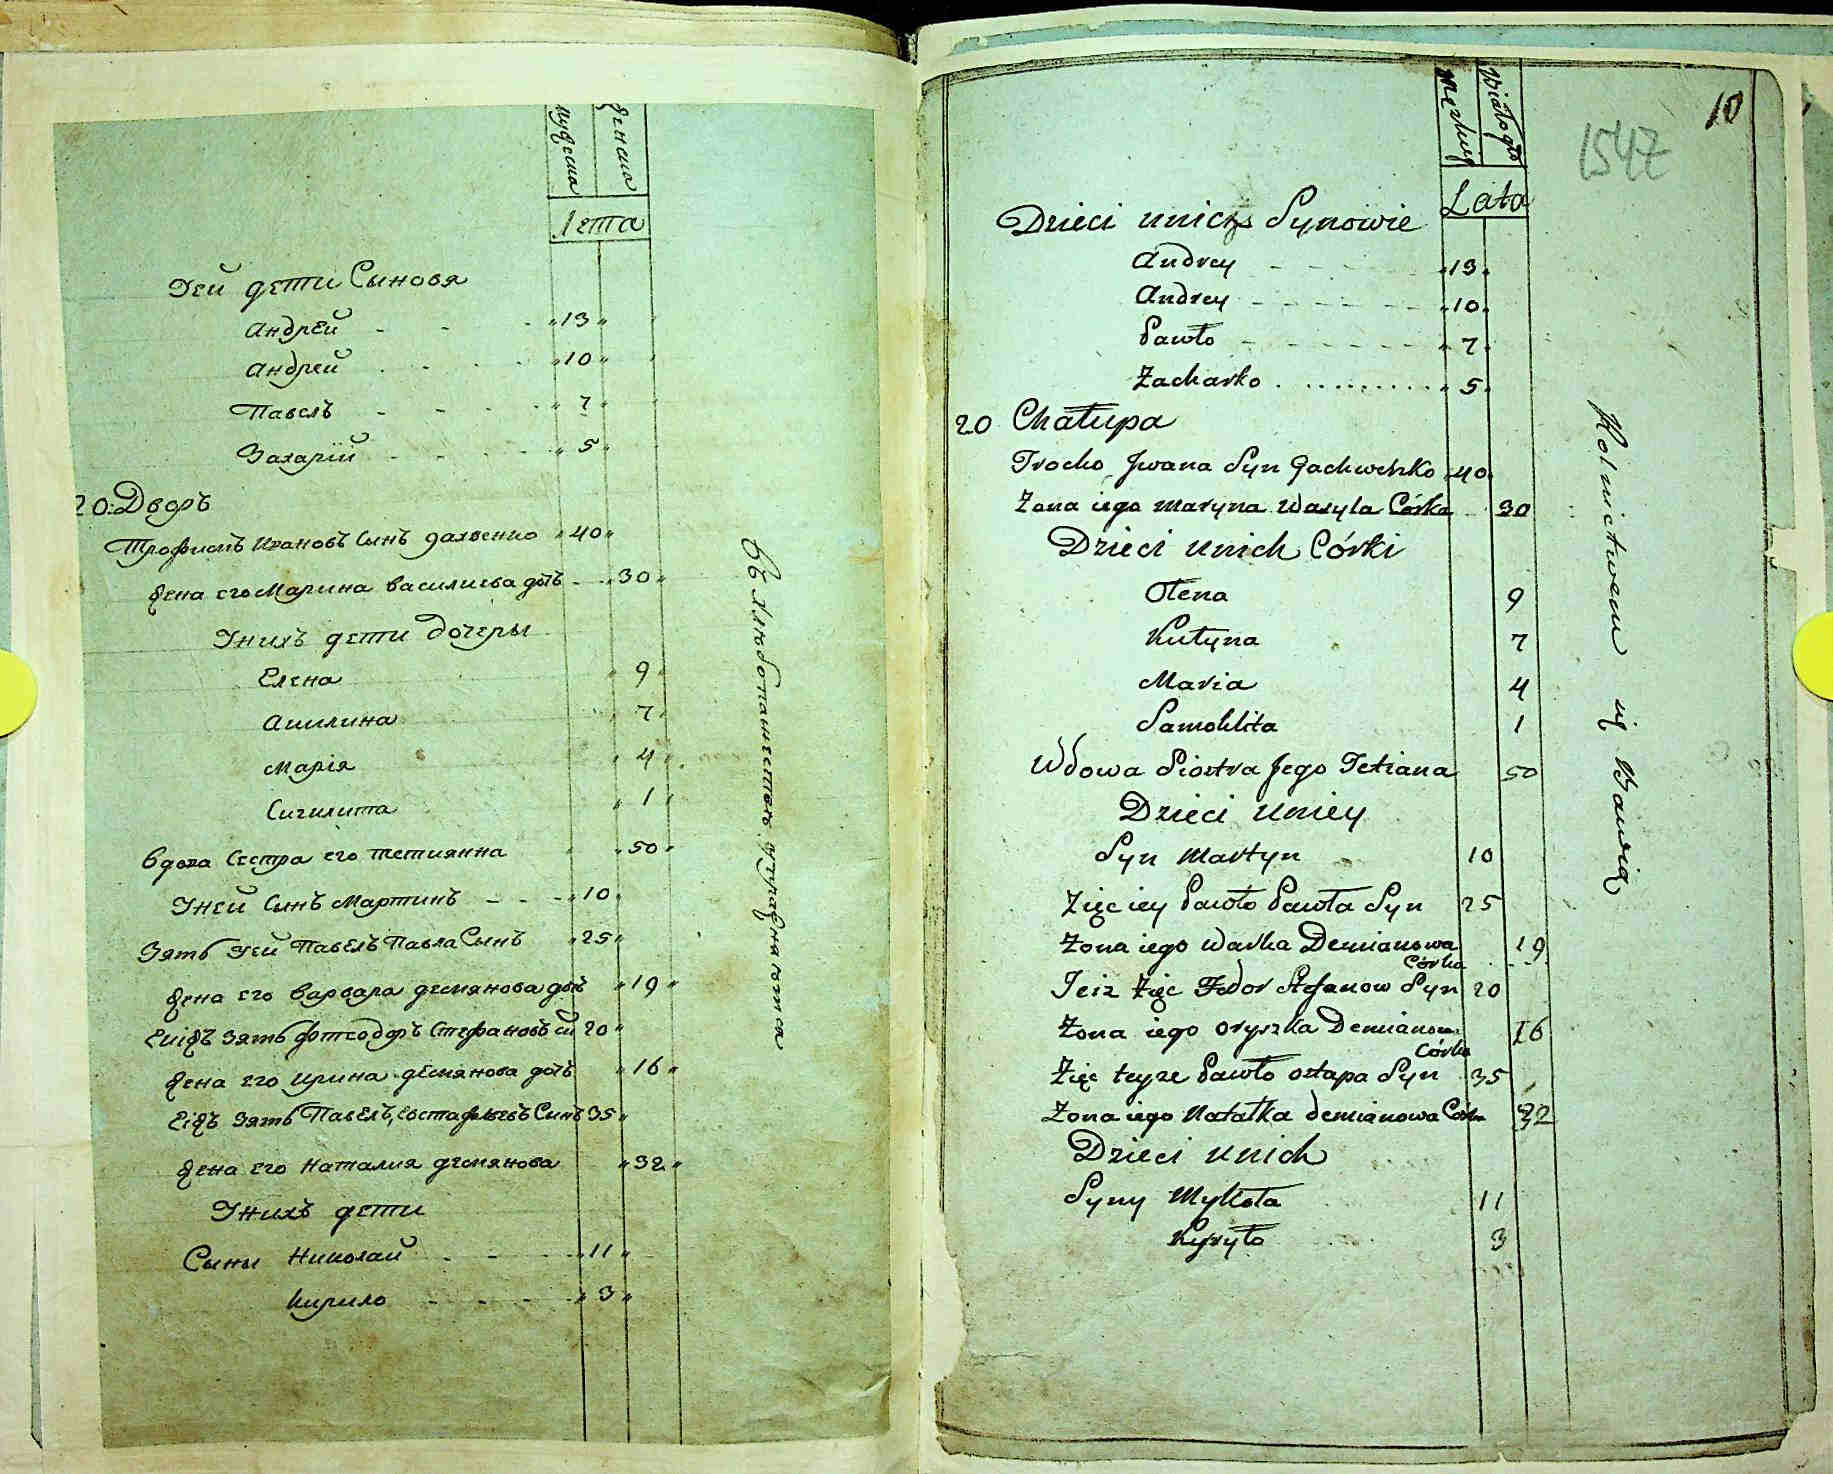 мужеска
женска
Лета
Уей дети Сыновя
Андрей - - - "13"
Андрей - - - "10"
Павелъ - - - "7"
Захарий - - - "5"
20: Дворъ
Трофимъ Ивановъ Сынъ "40"
жена его Марина Василиева дочь - "30"
Унихъ дети дочеры
Елена "9"
Акилина "7"
Марія "4"
"1"
вдова Сестра его Тетиянна "50"
Уней Сынъ Мартинъ - - - "10"
Зять Уей Павелъ Павла Сынъ "25"
жена его Варвара демянова дочь "19"
Еиіжъ Зять Стефановъ 20"
жена его Ирина демянова дочь "16"
Еіжъ Зять Павелъ, Сынъ 35"
жена его Наталия демянова "32"
Унихъ дети
Сыны Николай - - - "11"
Кирило - - - "3"
10
1547
Męzkiej
Lata
Dzieci unich Synowie
Andrey - - - - - "13"
Andrey - - - - - "10"
Pawło - - - - - "7"
Zacharko . . . . . . . . "5"
20 Chałupa
Trocho Jwana Syn 40
Zona iego Maryna Wasyla Córka 30
Dzieci unich Córki
Olena 9
Kulyna 7
Maria 4
1
Wdowa Siostra Jego Tetiana 50
Dzieci uniey
Syn Martyn 10
Zięc iey Pawło Pawła Syn 25
Zona iego Warka Demianowa Córka 19
Teiz Zięc Fedor Stefanow Syn 20
Zona iego Oryszka Demianow Córka 16
Zięc teyze Pawło Ostapa Syn 35
Zona iego Natałka demianowa Córka 32
Dzieci unich
Syny Mykoła 11
Kyryło 3
Rolnictwem się Bawią